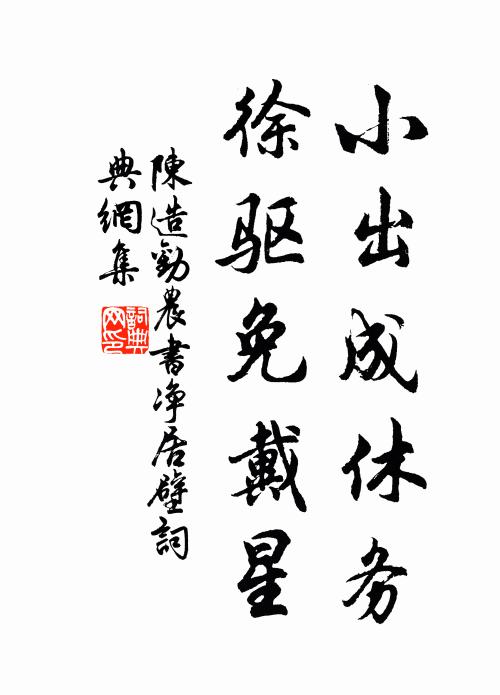 小出成休务
徐驱免戴星
陳造勸農書净居壁詞
典網集
詞典
网印